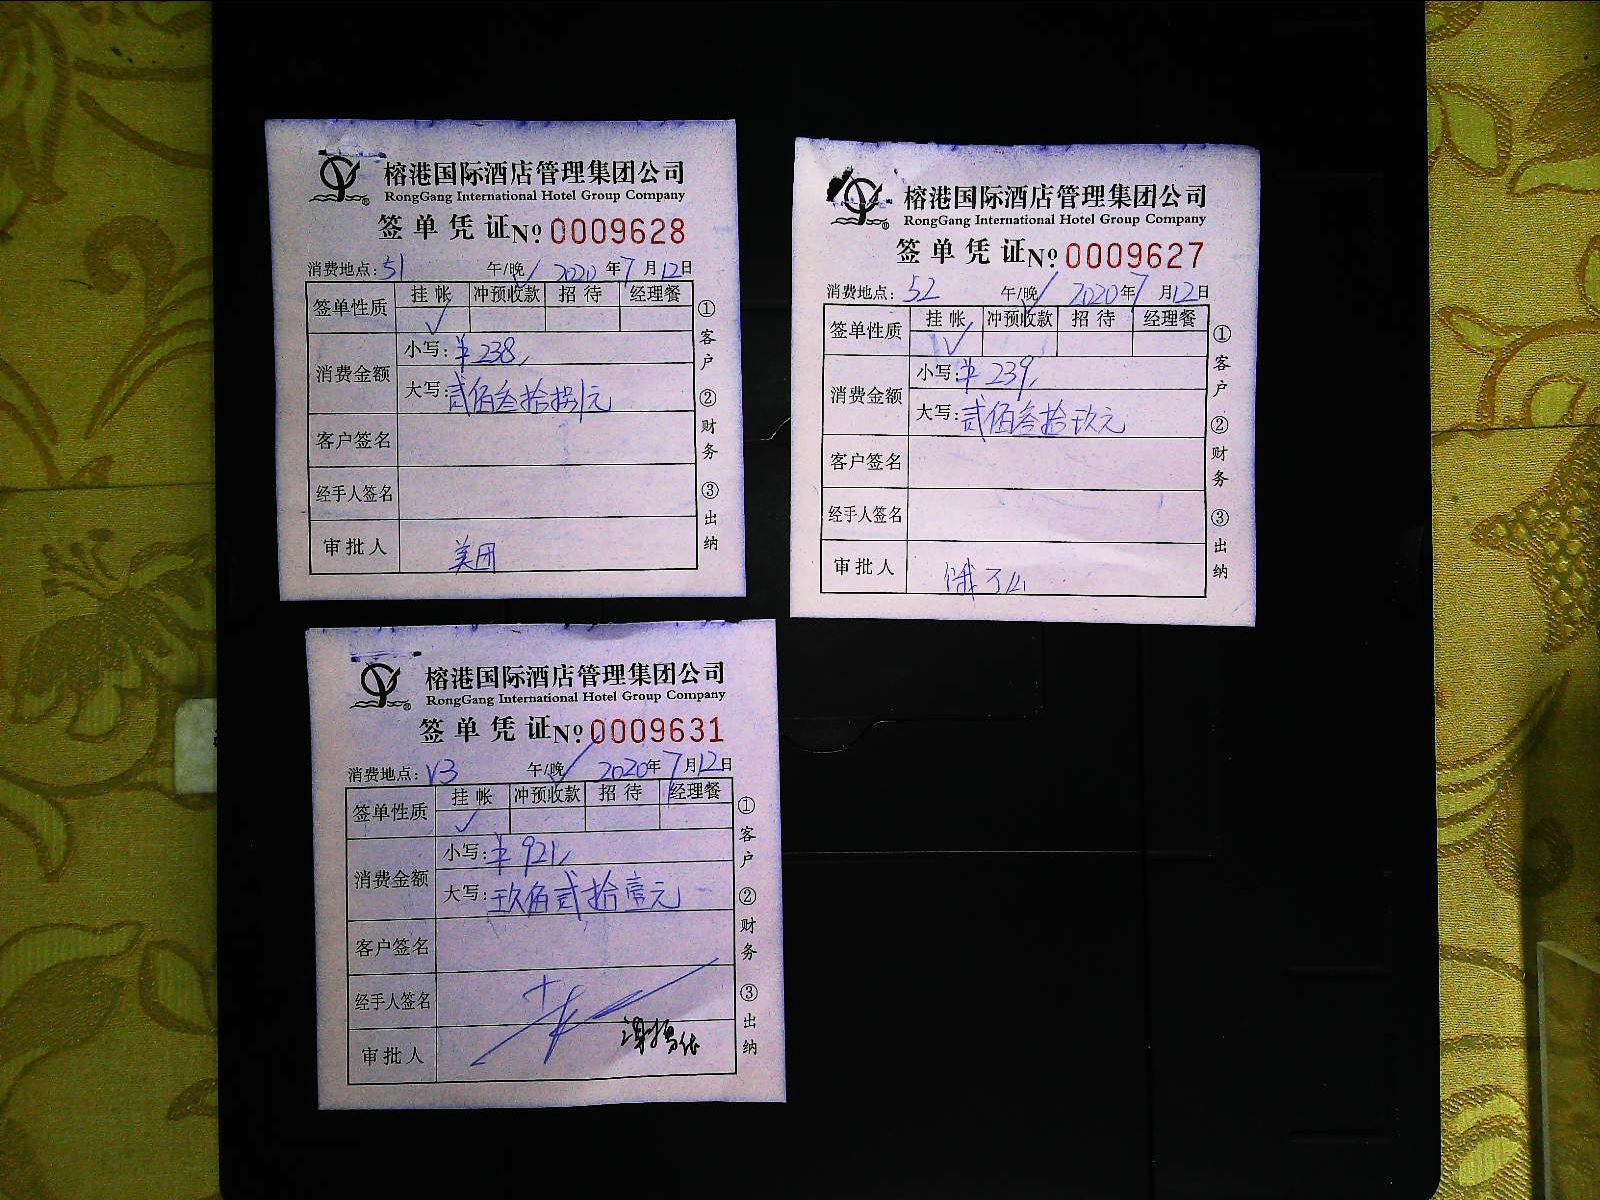 榕港国际酒店管理集团公司
RongGang International Hotel Group Company
签单凭证 № 0009628
消费地点: 51 午/晚 2020年7月12日
签单性质 挂帐 冲预收款 招待 经理餐
消费金额
小写: ¥238,
大写: 贰佰叁拾捌元
客户签名
经手人签名
审批人 美团
①客户 ②财务 ③出纳
榕港国际酒店管理集团公司
RongGang International Hotel Group Company
签单凭证 № 0009627
消费地点: 52 午/晚 2020年7月12日
签单性质 挂帐 冲预收款 招待 经理餐
消费金额
小写: ¥239,
大写: 贰佰叁拾玖元
客户签名
经手人签名
审批人 饿了么
①客户 ②财务 ③出纳
榕港国际酒店管理集团公司
RongGang International Hotel Group Company
签单凭证 № 0009631
消费地点: V3 午/晚 2020年7月12日
签单性质 挂帐 冲预收款 招待 经理餐
消费金额
小写: ¥921,
大写: 玖佰贰拾壹元
客户签名
经手人签名
审批人
①客户 ②财务 ③出纳